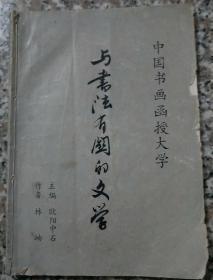 中国书画函授大学
与书法有关的文学
主编 欧阳中石
作者 林岫